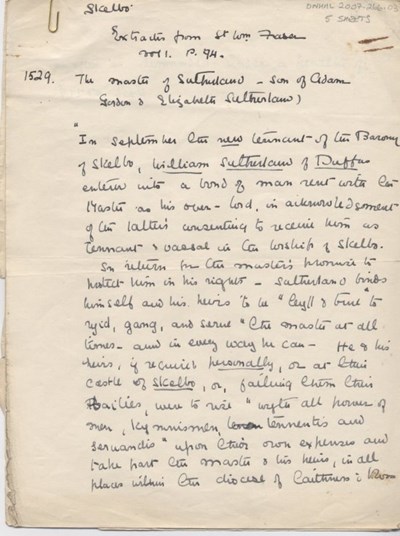 Skelbo
DNHHL 2007-266-03
5 SHEETS
Extracts from Sr Wm. Fraser
vol 1. P. 94.
1529. The master of Sutherland - son of Adam
Gordon & Elizabeth Sutherland)
"In September the new tennant of the Barony
of Skelbo, William Sutherland of Duffus
enters into a bond of man rent with the
Master as his over-lord, in acknowledgement
of the latter's consenting to receive him as
tennant & vassal in the lordship of Skelbo.
In return for the master's promise to
protect him in his rights - Sutherland binds
himself and his heirs to be "leyll & true" to
ryid, gang, and serve "the master at all
times - and in every way he can - He & his
heirs, if required personally, or at their
castle of Skelbo, or, failing them their
Bailies, were to rise "wyth all power of
men, kynnismen, tennentis and
servandis" upon their own expenses and
take part the master & his heirs, in all
places within the diocese of Caithness &